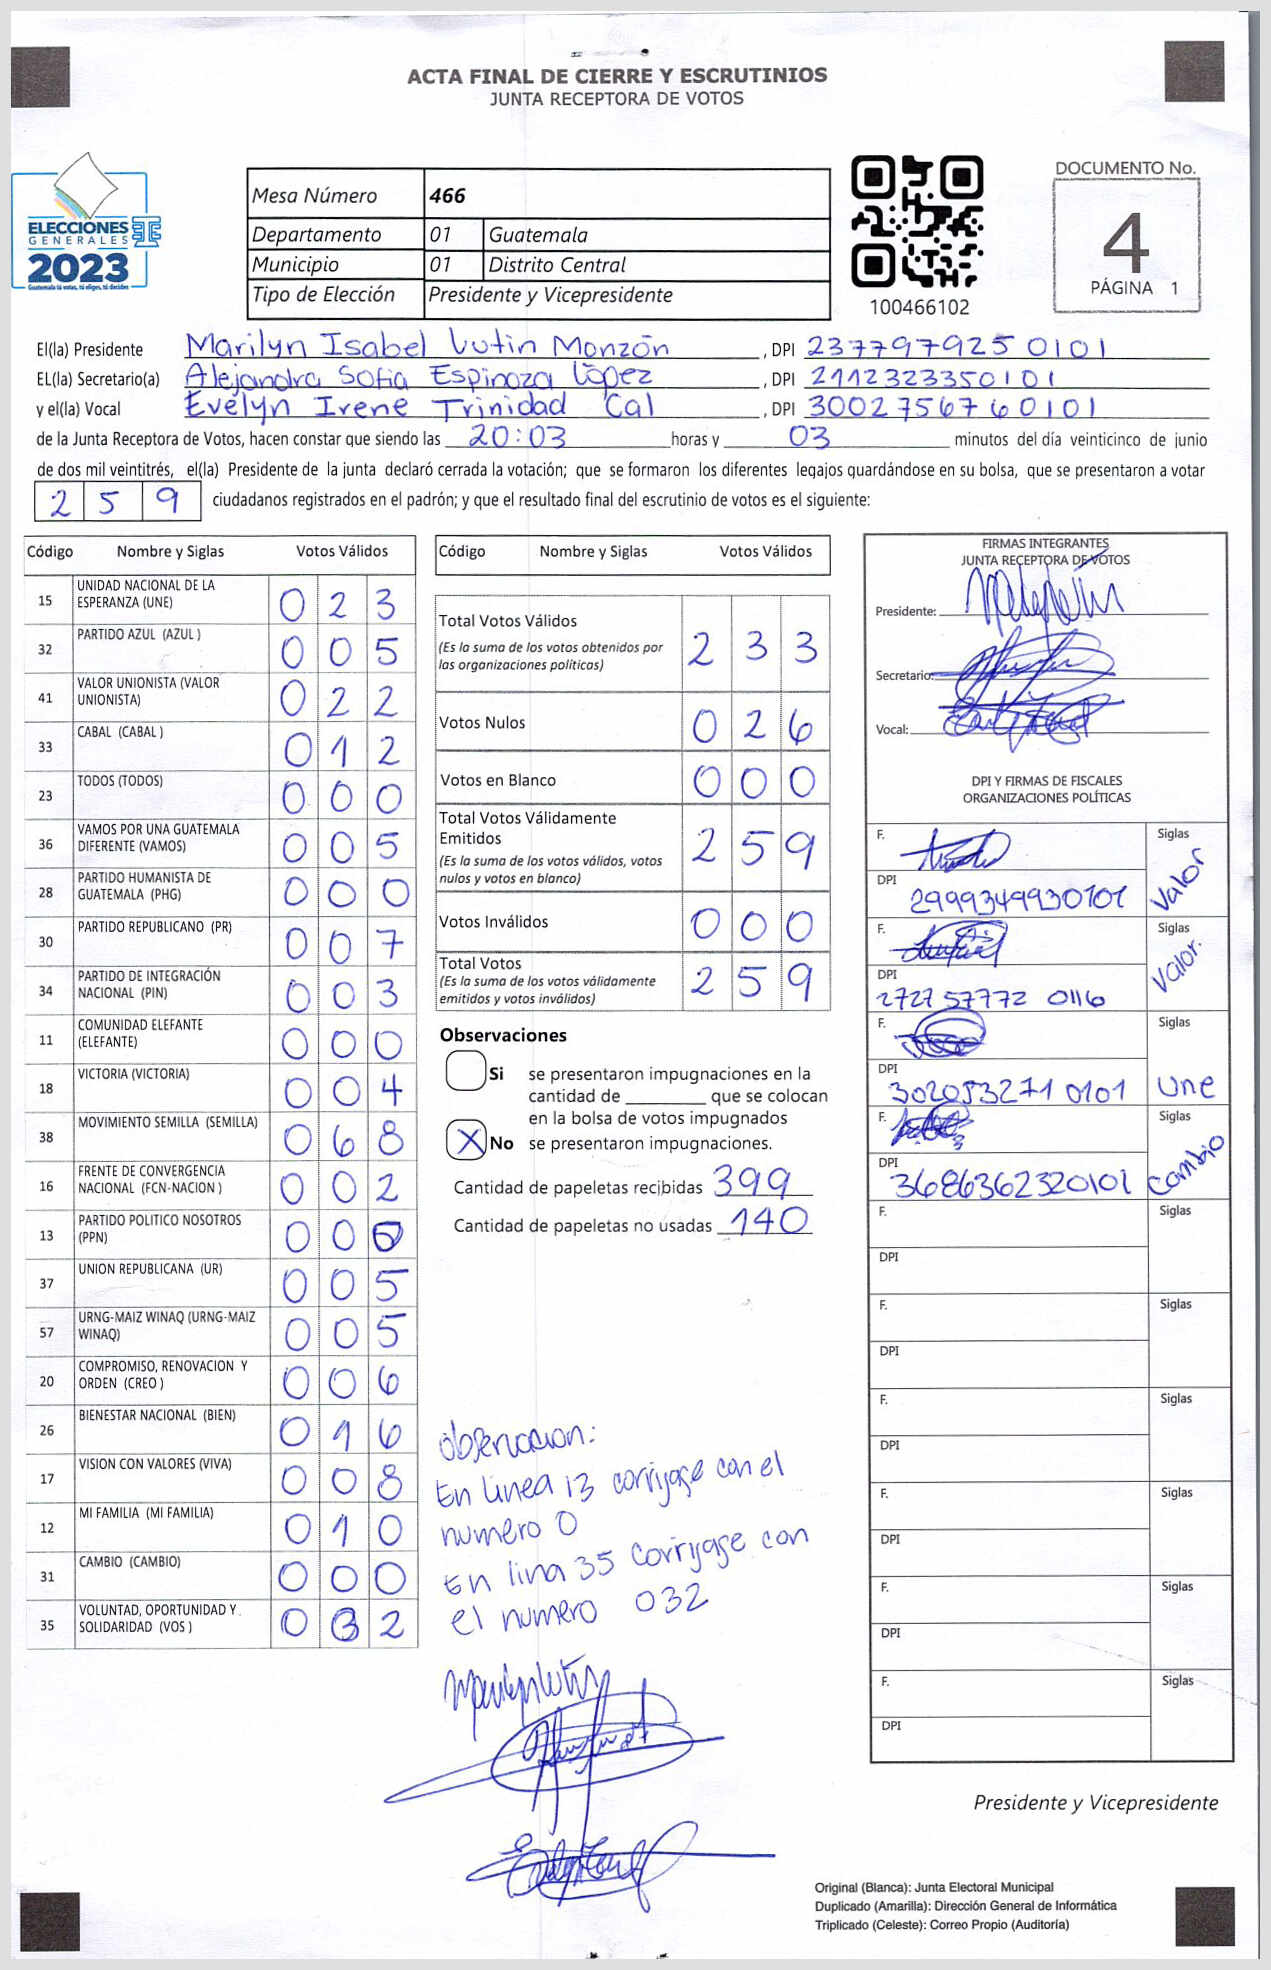 ACTA FINAL DE CIERRE Y ESCRUTINIOS
JUNTA RECEPTORA DE VOTOS
ELECCIONES
GENERALES
2023
Guatemala tú votas, tú eliges, tú decides
Mesa Número 466
Departamento 01 Guatemala
Municipio 01 Distrito Central
Tipo de Elección Presidente y Vicepresidente
100466102
DOCUMENTO No.
4
PÁGINA 1
El(la) Presidente Marilyn Isabel Vutin Monzón, DPI 2377979250101
EL(la) Secretario(a) Alejandra Sofia Espinoza López, DPI 2112323350101
y el(la) Vocal Evelyn Irene Trinidad Cal, DPI 3002756760101
de la Junta Receptora de Votos, hacen constar que siendo las 20:03 horas y 03 minutos del día veinticinco de junio
de dos mil veintitrés, el(la) Presidente de la junta declaró cerrada la votación; que se formaron los diferentes legajos guardándose en su bolsa, que se presentaron a votar
2 5 9 ciudadanos registrados en el padrón; y que el resultado final del escrutinio de votos es el siguiente:
Código Nombre y Siglas Votos Válidos
15 UNIDAD NACIONAL DE LA ESPERANZA (UNE) 0 2 3
32 PARTIDO AZUL (AZUL ) 0 0 5
41 VALOR UNIONISTA (VALOR UNIONISTA) 0 2 2
33 CABAL (CABAL ) 0 1 2
23 TODOS (TODOS) 0 0 0
36 VAMOS POR UNA GUATEMALA DIFERENTE (VAMOS) 0 0 5
28 PARTIDO HUMANISTA DE GUATEMALA (PHG) 0 0 0
30 PARTIDO REPUBLICANO (PR) 0 0 7
34 PARTIDO DE INTEGRACIÓN NACIONAL (PIN) 0 0 3
11 COMUNIDAD ELEFANTE (ELEFANTE) 0 0 0
18 VICTORIA (VICTORIA) 0 0 4
38 MOVIMIENTO SEMILLA (SEMILLA) 0 6 8
16 FRENTE DE CONVERGENCIA NACIONAL (FCN-NACION ) 0 0 2
13 PARTIDO POLITICO NOSOTROS (PPN) 0 0 0
37 UNION REPUBLICANA (UR) 0 0 5
57 URNG-MAIZ WINAQ (URNG-MAIZ WINAQ) 0 0 5
20 COMPROMISO, RENOVACION Y ORDEN (CREO ) 0 0 6
26 BIENESTAR NACIONAL (BIEN) 0 1 6
17 VISION CON VALORES (VIVA) 0 0 8
12 MI FAMILIA (MI FAMILIA) 0 1 0
31 CAMBIO (CAMBIO) 0 0 0
35 VOLUNTAD, OPORTUNIDAD Y SOLIDARIDAD (VOS ) 0 3 2
Código Nombre y Siglas Votos Válidos
Total Votos Válidos 2 3 3
(Es la suma de los votos obtenidos por
las organizaciones políticas)
Votos Nulos 0 2 6
Votos en Blanco 0 0 0
Total Votos Válidamente
Emitidos 2 5 9
(Es la suma de los votos válidos, votos
nulos y votos en blanco)
Votos Inválidos 0 0 0
Total Votos 2 5 9
(Es la suma de los votos válidamente
emitidos y votos inválidos)
Observaciones
Si se presentaron impugnaciones en la
cantidad de ________ que se colocan
en la bolsa de votos impugnados
X No se presentaron impugnaciones.
Cantidad de papeletas recibidas 399
Cantidad de papeletas no usadas 140
observacion:
En linea 13 corrijase con el
numero 0
En lina 35 corrijase con
el numero 032
FIRMAS INTEGRANTES
JUNTA RECEPTORA DE VOTOS
Presidente:
Secretario:
Vocal:
DPI Y FIRMAS DE FISCALES
ORGANIZACIONES POLÍTICAS
F. Siglas
DPI 2999349930101 Valor
F. Siglas
DPI 2727 57772 0116 Valor.
F. Siglas
DPI 302053271 0101 Une
F. Siglas
DPI 3686362320101 Cambio
F. Siglas
DPI
F. Siglas
DPI
F. Siglas
DPI
F. Siglas
DPI
F. Siglas
DPI
F. Siglas
DPI
Presidente y Vicepresidente
Original (Blanca): Junta Electoral Municipal
Duplicado (Amarilla): Dirección General de Informática
Triplicado (Celeste): Correo Propio (Auditoría)